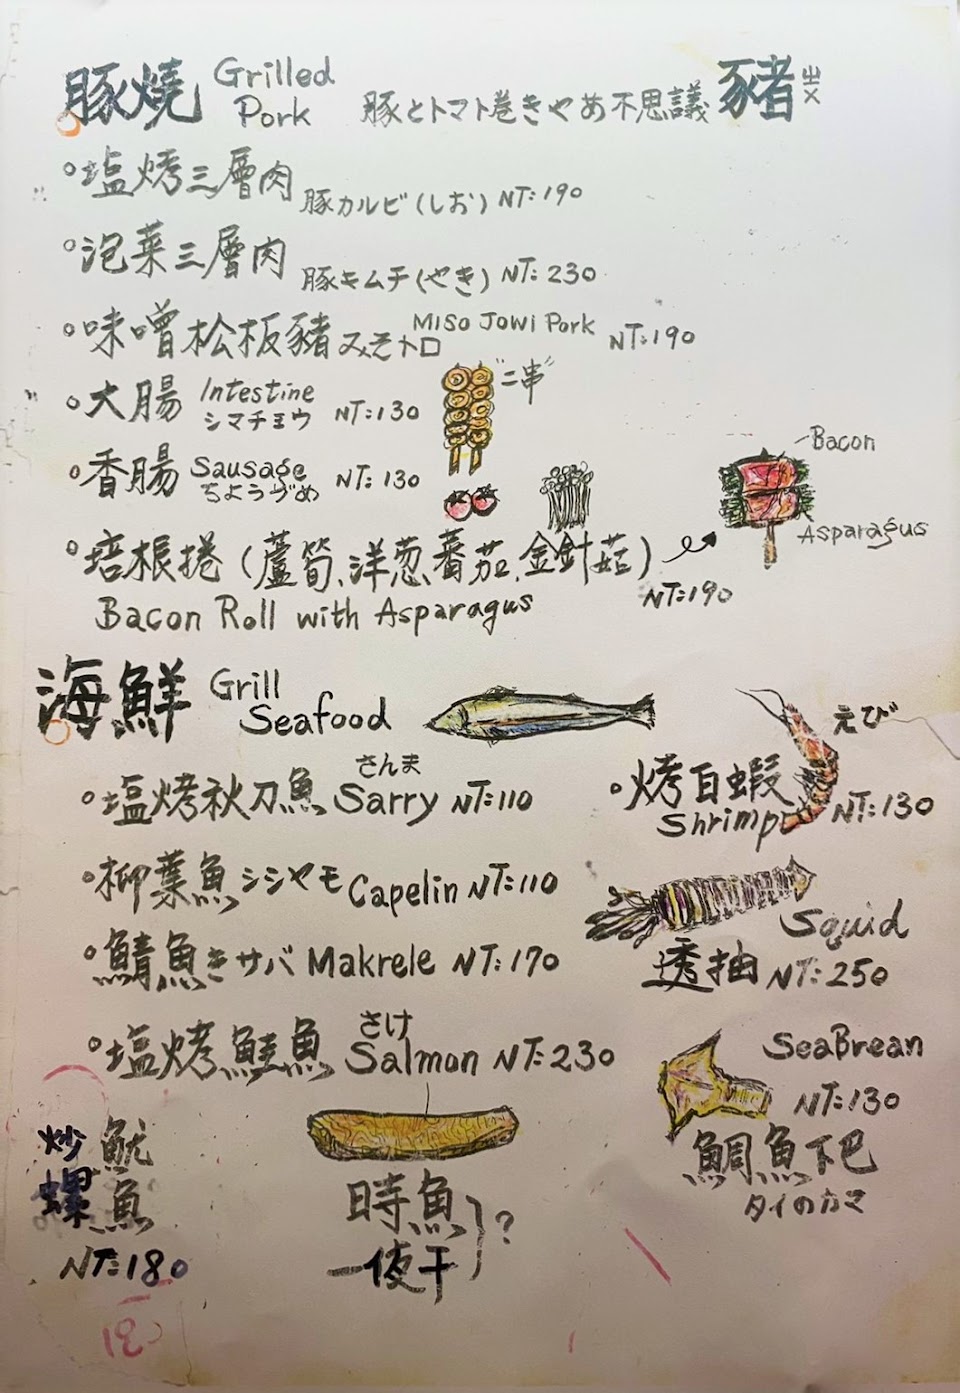 豚燒 Grilled Pork 豚とトマト巻きやあ不思議 豬 ㄓㄨ
塩烤三層肉 豚カルビ(しお) NT:190
泡菜三層肉 豚キムチ(やき) NT:230
味噌松板豬 みそトロ Miso Jowi Pork NT:190
大腸 Intestine シマチョウ NT:130 "二串"
香腸 Sausage ちょうづめ NT:130
Bacon
Asparagus
培根捲(蘆筍、洋葱、蕃茄、金針菇) NT:190
Bacon Roll with Asparagus
海鮮 Grill Seafood
塩烤秋刀魚 さんま Sarry NT:110
柳葉魚 シシャモ Capelin NT:110
鯖魚 きサバ Makrele NT:170
塩烤鮭魚 さけ Salmon NT:230
えび
烤白蝦 Shrimp NT:130
Squid
透抽 NT:250
SeaBrean
NT:130
鯛魚下巴
タイのカマ
炒魷
螺魚
NT:180
時魚
一夜干 ?